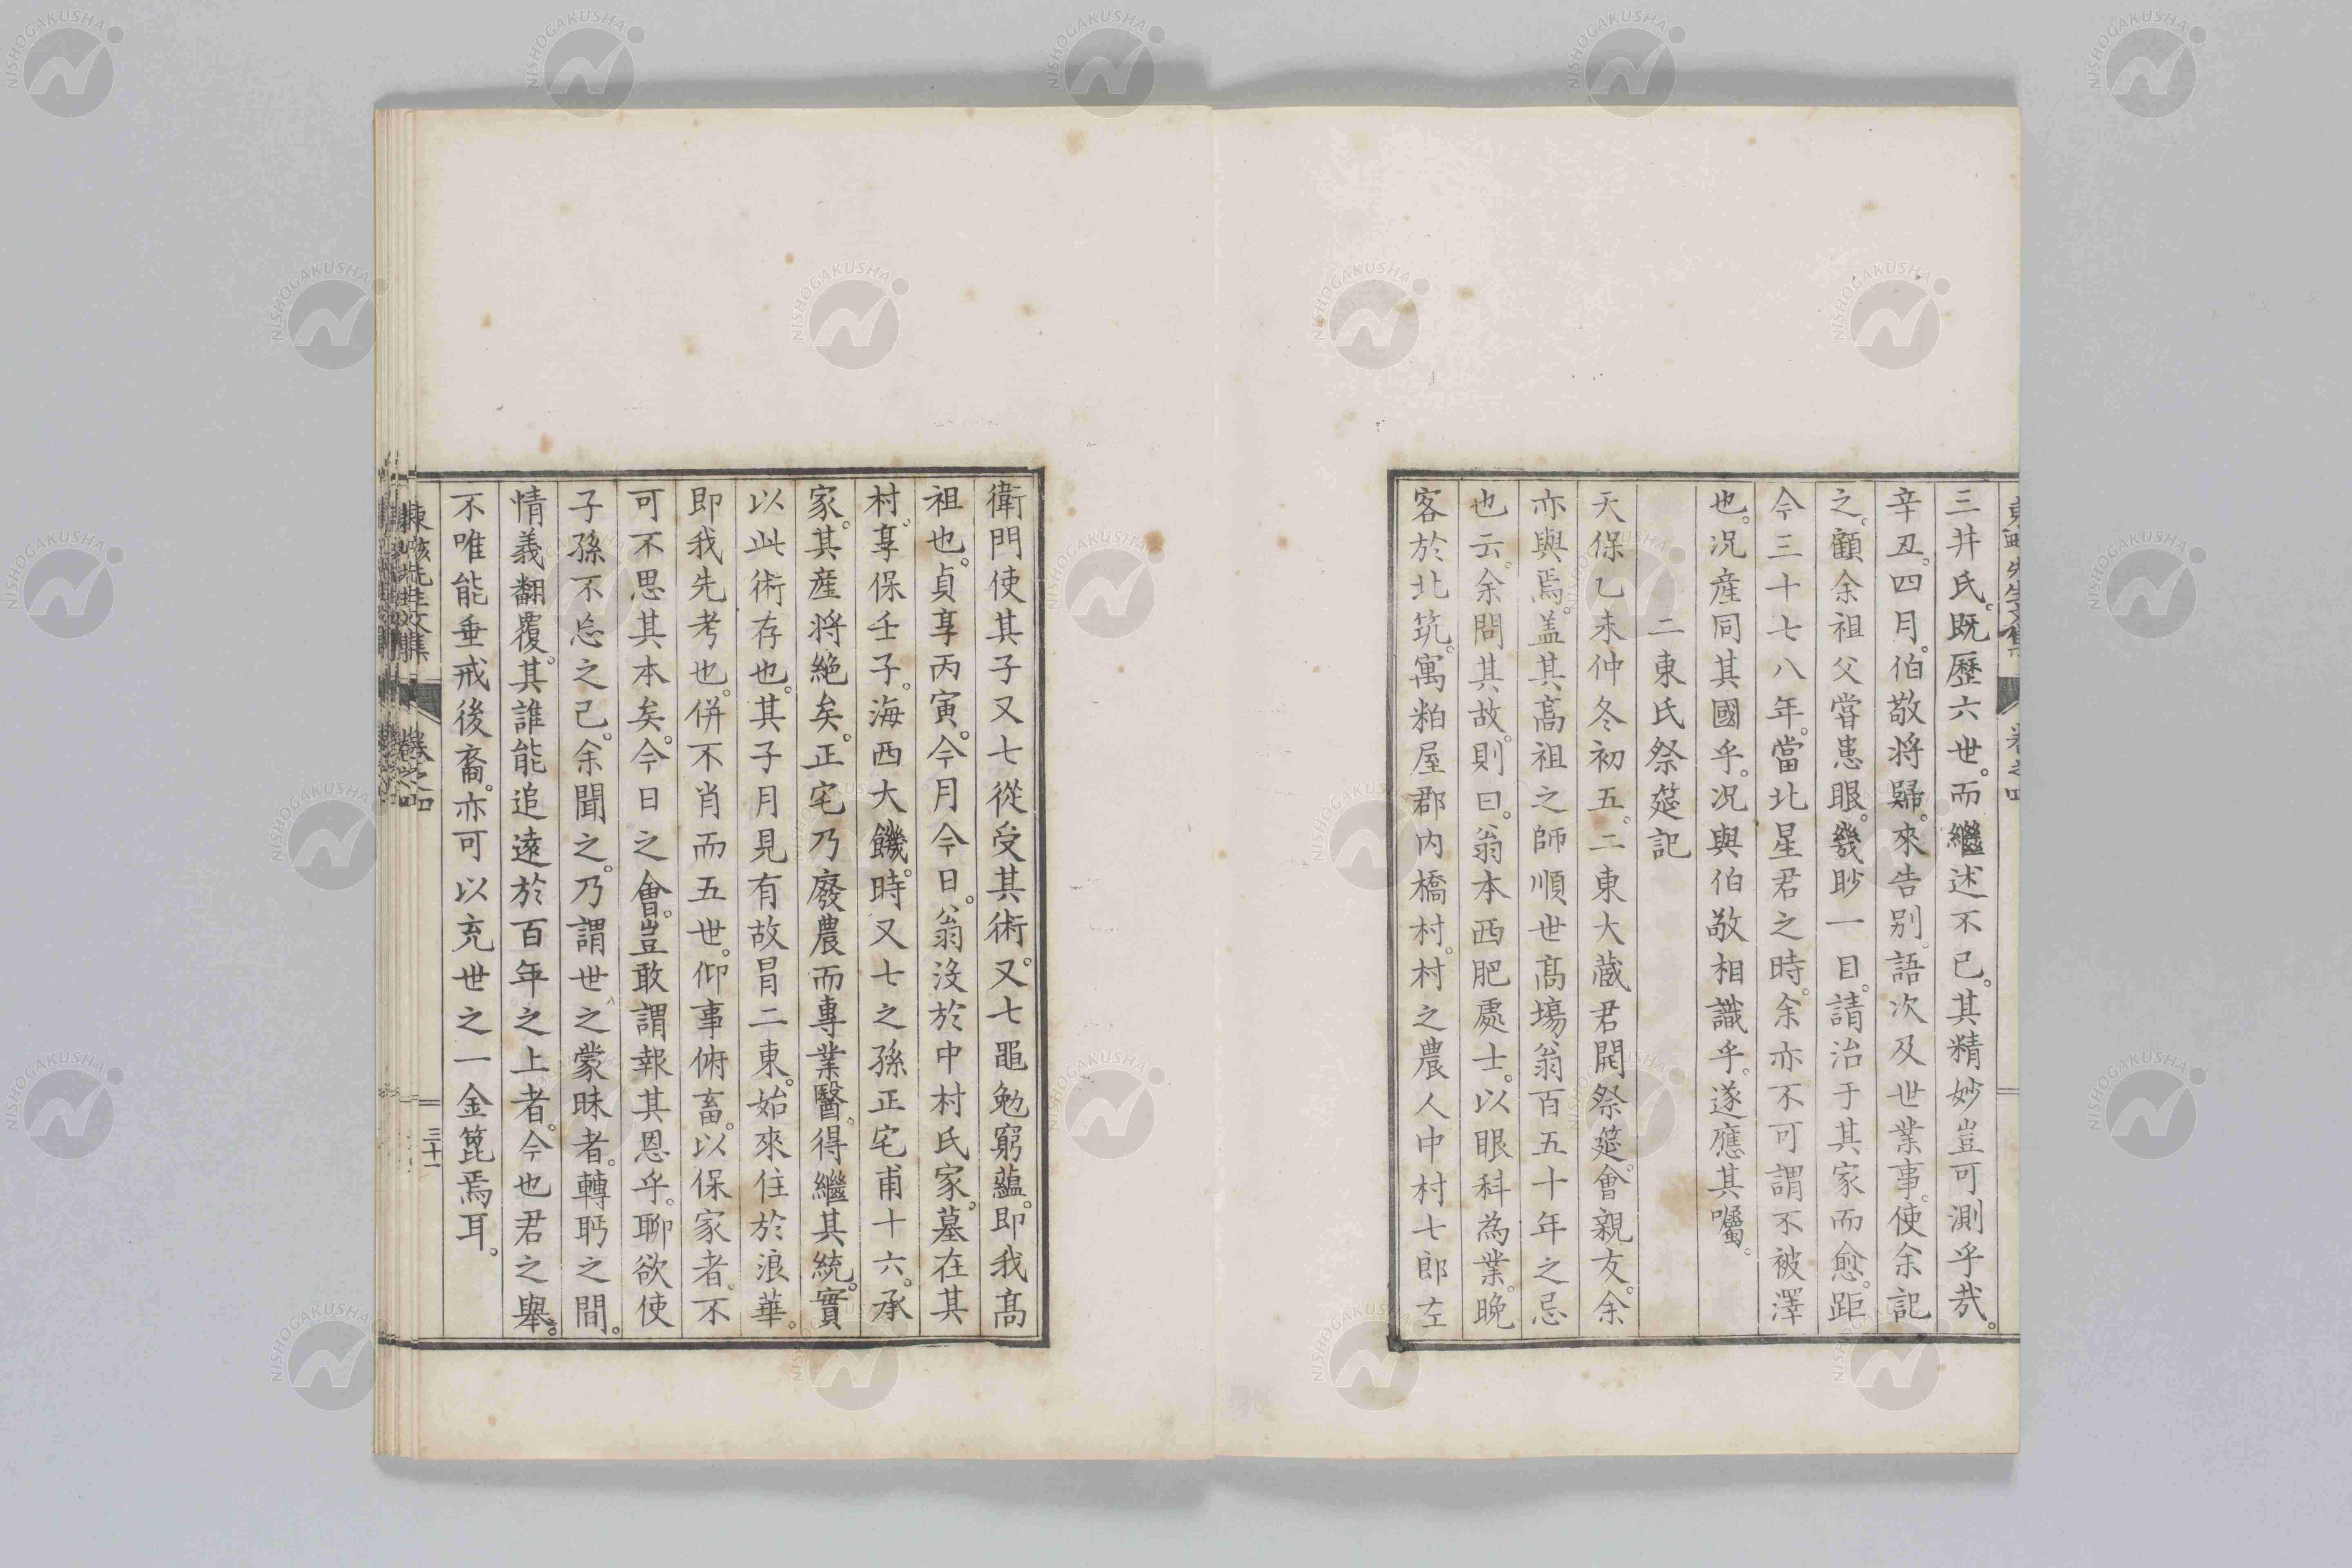 三井氏。既歷六世。而繼述不已。其精妙豈可測乎哉。
辛丑。四月。伯敬将歸。來告別。語次及世業事。使余記
之。顧余祖父甞患眼。幾眇一目。請治于其家而愈。距
今三十七八年。當北星君之時。余亦不可謂不被澤
也。况產同其國乎。况與伯敬相識乎。遂應其囑。
二東氏祭筵記
天保乙未仲冬初五。二東大蔵君開祭筵。會親友。余
亦與焉。盖其髙祖之師順世髙塲翁百五十年之忌
也云。余問其故。則曰。翁本西肥處士。以眼科為業。晚
客於北筑。寓粕屋郡內橋村。村之農人中村七郎左
衛門使其子又七從受其術。又七黽勉窮蘊。即我髙
祖也。貞享丙寅。今月今日。翁沒於中村氏家。墓在其
村。享保壬子。海西大饑。時又七之孫正宅甫十六。承
家。其產将絶矣。正宅乃廢農而專業醫。得繼其統。實
以此術存也。其子月見有故冒二東。始來住於浪華。
即我先考也。併不肖而五世。仰事俯畜。以保家者。不
可不思其本矣。今日之會。豈敢謂報其恩乎。聊欲使
子孫不忘之已。余聞之。乃謂世之蒙昧者。轉眄之間。
情義翻覆。其誰能追遠於百年之上者。今也君之舉。
不唯能垂戒後裔。亦可以充世之一金箆焉耳。
先生文集
卷之四
三十一
NISHOGAKUSHA